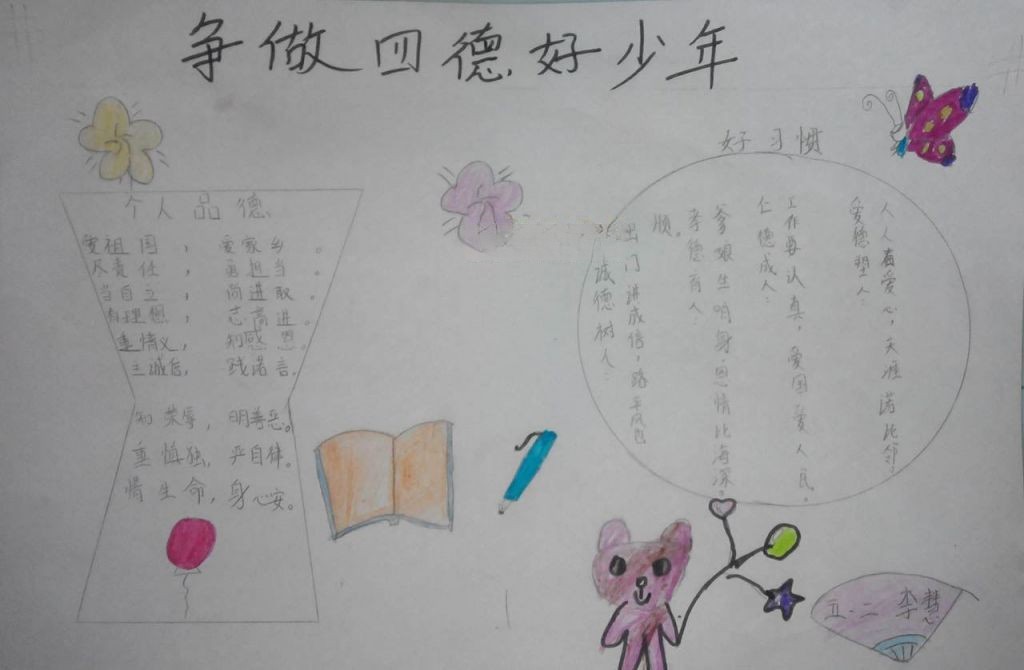 争做四德好少年
个人品德
爱祖国，爱家乡。
尽责任，勇担当。
当自立，尚进取。
有理想，志高进。
重情义，知感恩。
主诚信，践诺言。
知荣辱，明善恶。
重慎独，严自律。
惜生命，身心安。
好习惯
爱德塑人：
人人有爱心，天涯若比邻。
仁德成人：
工作要认真，爱国爱人民。
孝德育人：
爹娘生咱身，恩情比海深。
诚德树人：
出门讲诚信，路平风也
顺。
五·二 李慧